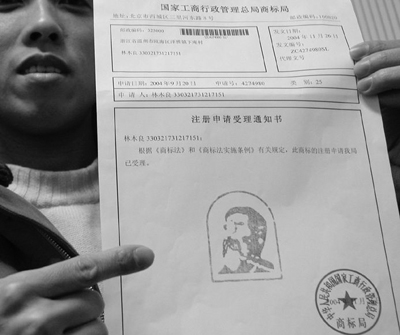 国家工商行政管理总局商标局
地址:北京市西城区三里河东路8号
邮政编码:100820
发文日期:
2004年11月26日
发文编号:
ZC4274980SL
代理文号
林木良 330321731217151
申请日期:2004年9月20日 申请号:4274980 类别:25
申请人:林木良 330321731217151
注册申请受理通知书
林木良 330321731217151:
根据《商标法》和《商标法实施条例》有关规定,此商标的注册申请我局
已受理。
中华人民共和国国家工商行政管理总局
商标局